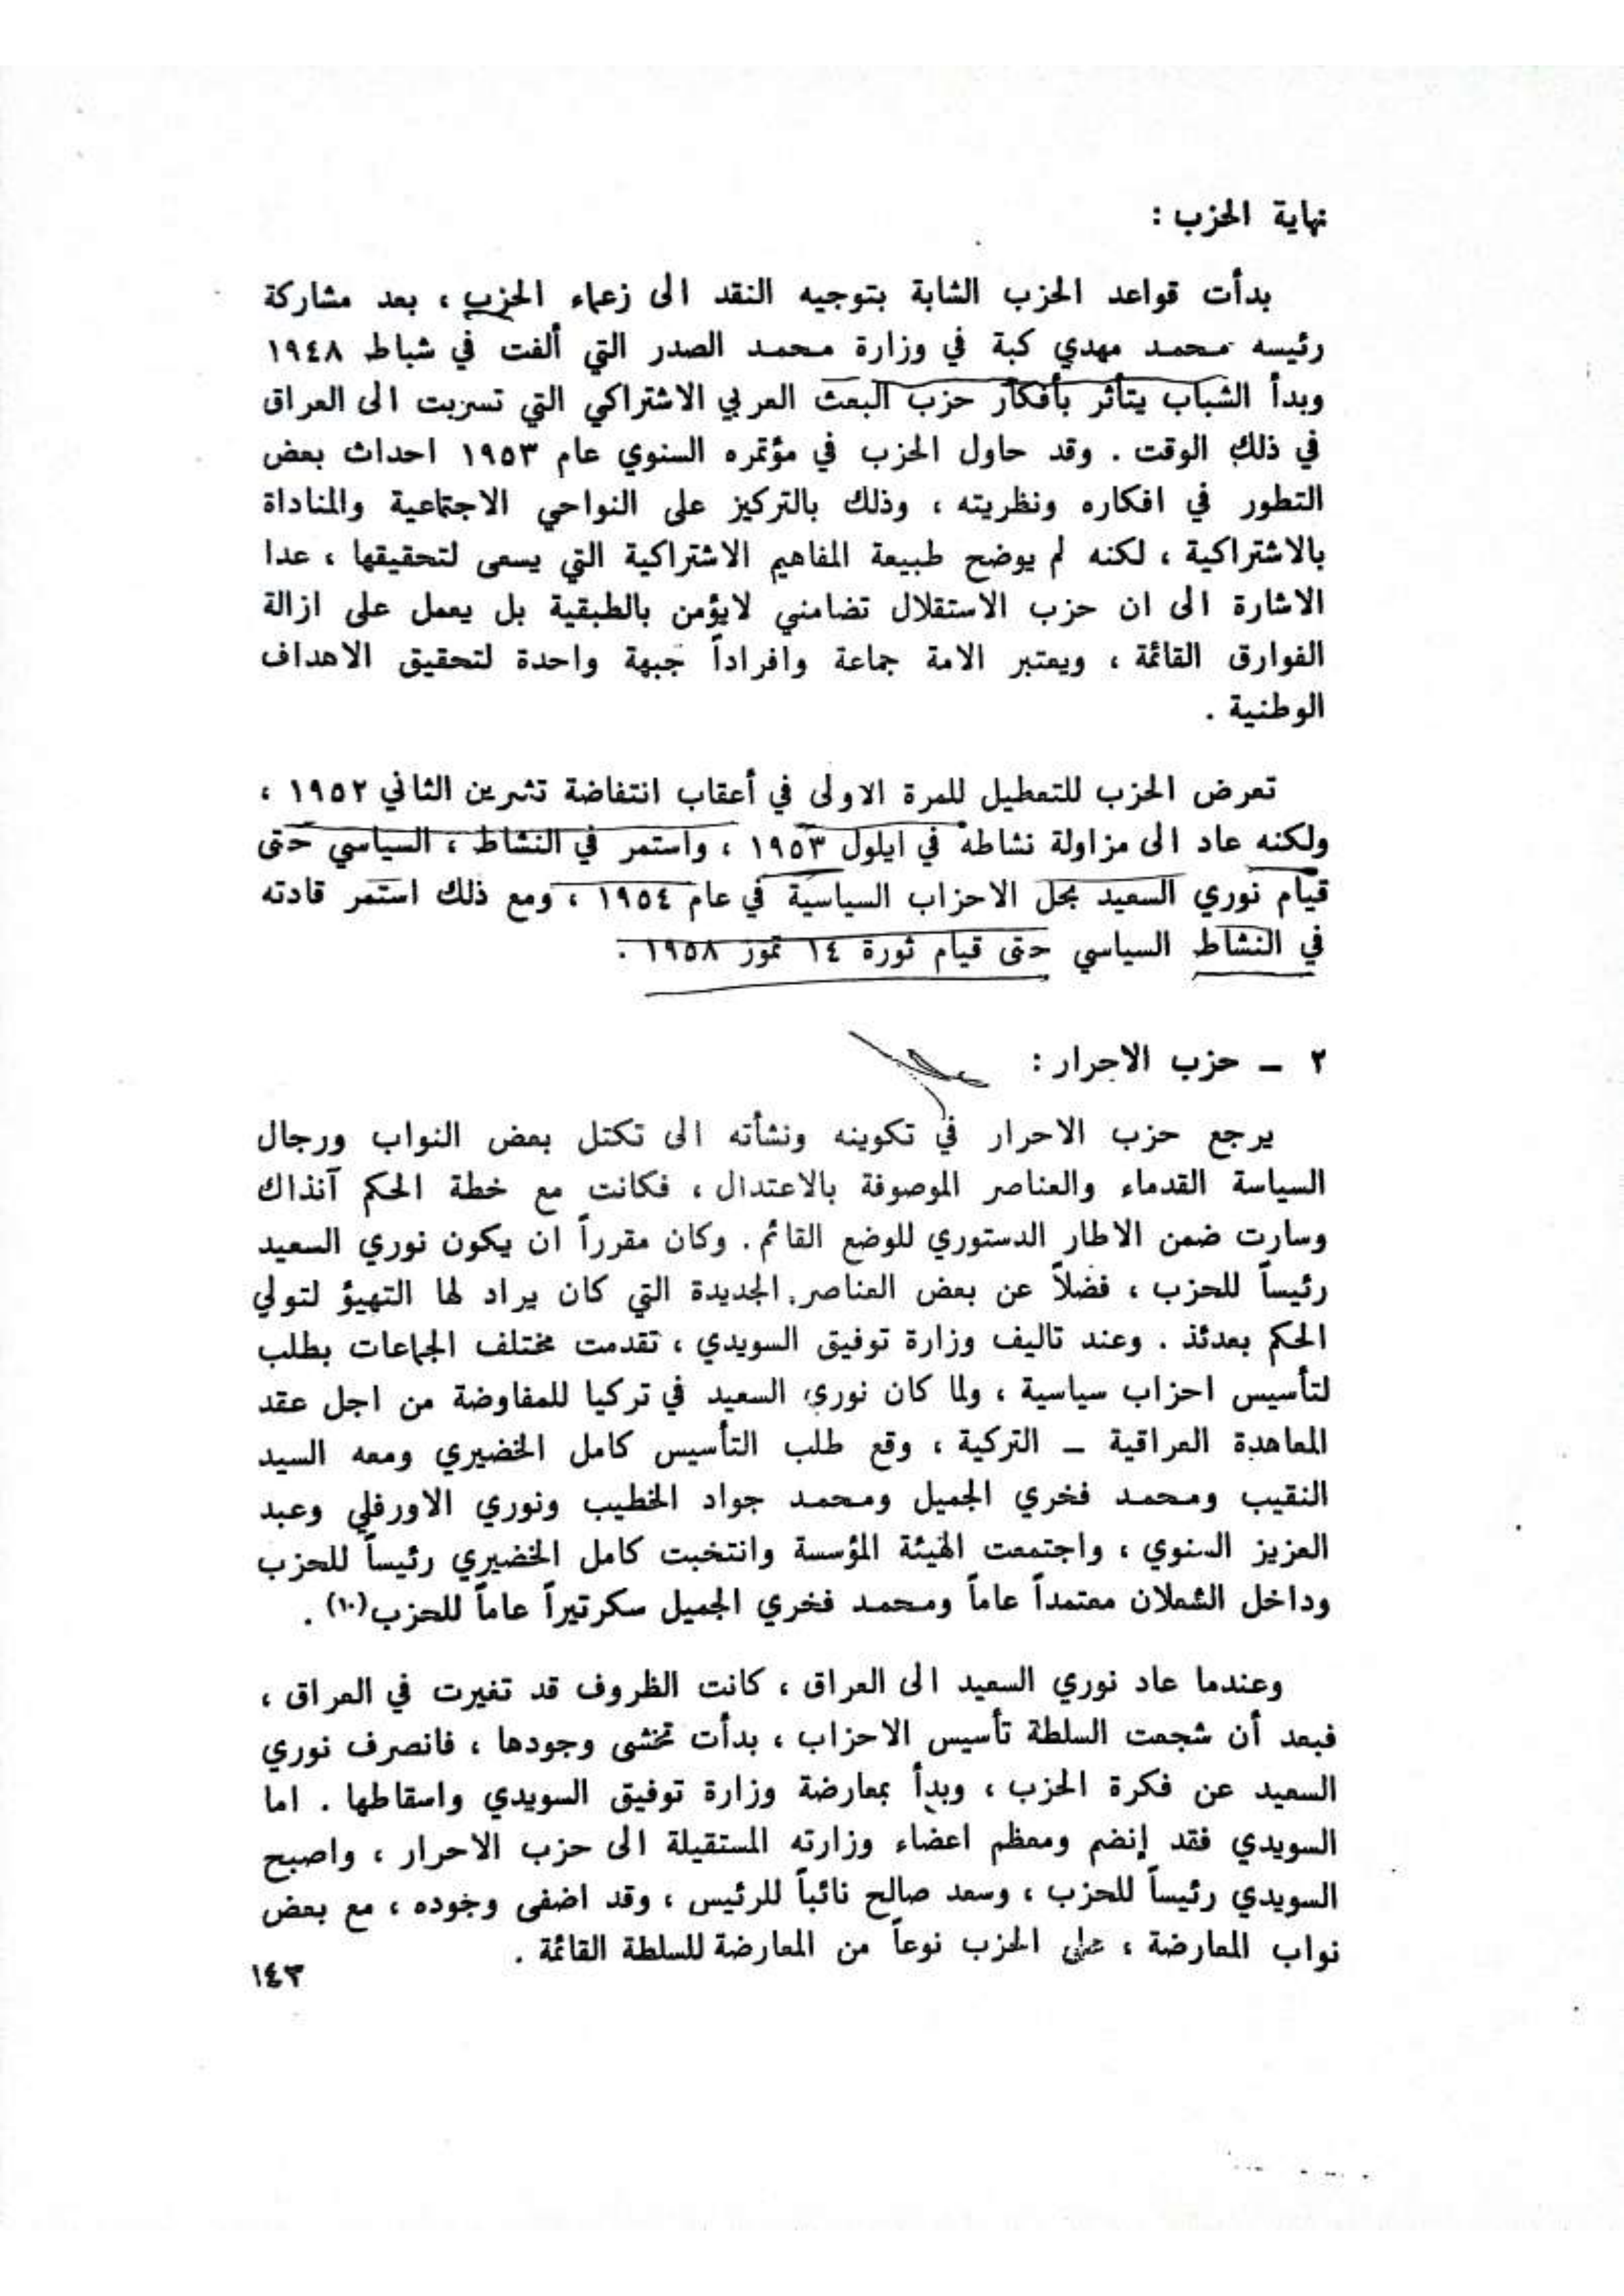 نهاية الحزب :
بدأت قواعد الحزب الشابة بتوجيه النقد الى زعماء الحزب ، بعد مشاركة
رئيسه محمد مهدي كبة في وزارة محمد الصدر التي ألفت في شباط ١٩٤٨
وبدأ الشباب يتأثر بأفكار حزب البعث العربي الاشتراكي التي تسربت الى العراق
في ذلك الوقت . وقد حاول الحزب في مؤتمره السنوي عام ١٩٥٣ احداث بعض
التطور في افكاره ونظريته ، وذلك بالتركيز على النواحي الاجتماعية والمناداة
بالاشتراكية ، لكنه لم يوضح طبيعة المفاهيم الاشتراكية التي يسعى لتحقيقها ، عدا
الاشارة الى ان حزب الاستقلال تضامني لايؤمن بالطبقية بل يعمل على ازالة
الفوارق القائمة ، ويعتبر الامة جماعة وافراداً جبهة واحدة لتحقيق الاهداف
الوطنية .
تعرض الحزب للتعطيل للمرة الاولى في أعقاب انتفاضة تشرين الثاني ١٩٥٢ ،
ولكنه عاد الى مزاولة نشاطه في ايلول ١٩٥٣ ، واستمر في النشاط ، السياسي حتى
قيام نوري السعيد بحل الاحزاب السياسية في عام ١٩٥٤ ، ومع ذلك استمر قادته
في النشاط السياسي حتى قيام ثورة ١٤ تموز ١٩٥٨ .
٢ ــ حزب الاحرار :
يرجع حزب الاحرار في تكوينه ونشأته الى تكتل بعض النواب ورجال
السياسة القدماء والعناصر الموصوفة بالاعتدال ، فكانت مع خطة الحكم آنذاك
وسارت ضمن الاطار الدستوري للوضع القائم . وكان مقرراً ان يكون نوري السعيد
رئيساً للحزب ، فضلاً عن بعض العناصر الجديدة التي كان يراد لها التهيؤ لتولي
الحكم بعدئذ . وعند تاليف وزارة توفيق السويدي ، تقدمت مختلف الجماعات بطلب
لتأسيس احزاب سياسية ، ولما كان نوري السعيد في تركيا للمفاوضة من اجل عقد
المعاهدة العراقية ــ التركية ، وقع طلب التأسيس كامل الخضيري ومعه السيد
النقيب ومحمد فخري الجميل ومحمد جواد الخطيب ونوري الاورفلي وعبد
العزيز السنوي ، واجتمعت الهيئة المؤسسة وانتخبت كامل الخضيري رئيساً للحزب
وداخل الشعلان معتمداً عاماً ومحمد فخري الجميل سكرتيراً عاماً للحزب(١٠) .
وعندما عاد نوري السعيد الى العراق ، كانت الظروف قد تغيرت في العراق ،
فبعد أن شجعت السلطة تأسيس الاحزاب ، بدأت تخشى وجودها ، فانصرف نوري
السعيد عن فكرة الحزب ، وبدأ بمعارضة وزارة توفيق السويدي واسقاطها . اما
السويدي فقد إنضم ومعظم اعضاء وزارته المستقيلة الى حزب الاحرار ، واصبح
السويدي رئيساً للحزب ، وسعد صالح نائباً للرئيس ، وقد اضفى وجوده ، مع بعض
نواب المعارضة ، على الحزب نوعاً من المعارضة للسلطة القائمة .
١٤٣